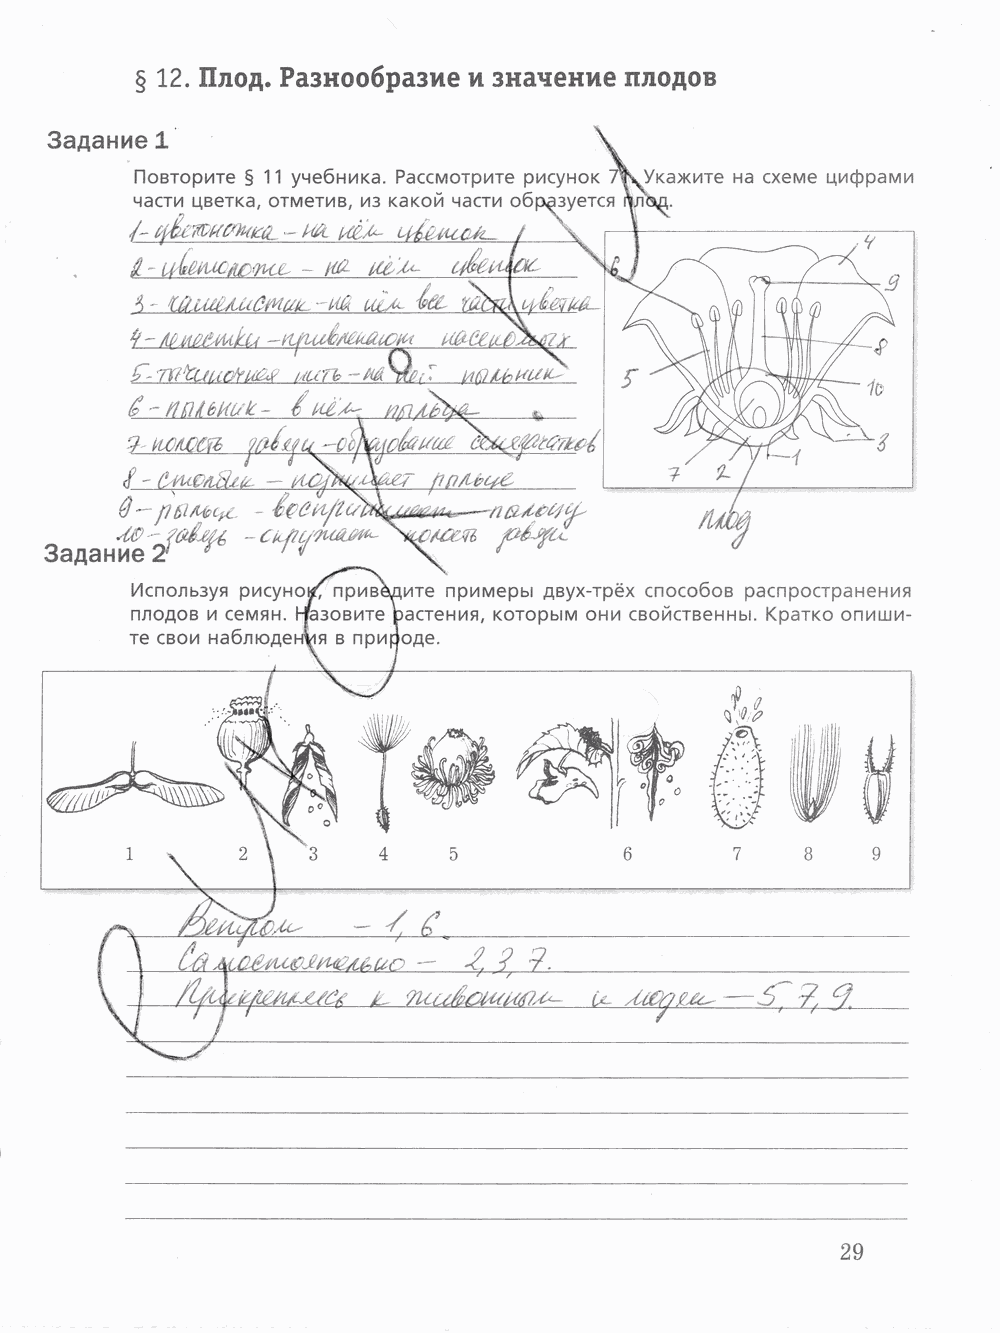 § 12. Плод. Разнообразие и значение плодов
Задание 1
Повторите § 11 учебника. Рассмотрите рисунок 71. Укажите на схеме цифрами
части цветка, отметив, из какой части образуется плод.
1-цветоножка – на нём цветок
2-цветоложе – на нём цветок
3- чашелистик – на нём все части цветка
4-лепестки – привлекают насекомых
5-тычиночная нить – на ней пыльник
6 – пыльник – в нём пыльца
7-полость завязи – образование семезачатков
8 – столбик – поднимает рыльце
9 – рыльце – воспринимает пыльцу
10 – завязь – окружает полость завязи
6
4
9
8
5
10
3
7
2
1
плод
Задание 2
Используя рисунок, приведите примеры двух-трёх способов распространения
плодов и семян. Назовите растения, которым они свойственны. Кратко опиши-
те свои наблюдения в природе.
1 2 3 4 5 6 7 8 9
Ветром – 1, 6.
Самостоятельно – 2, 3, 7.
Прикрепляясь к животным и людям – 5, 7, 9.
29